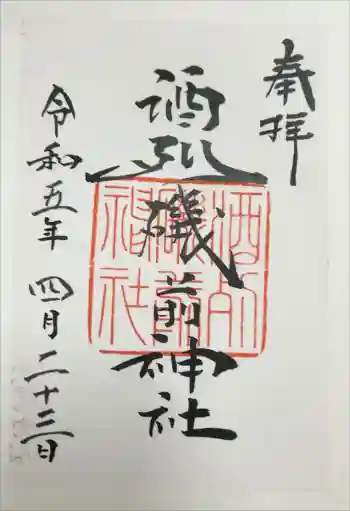 奉拝
酒列磯前神社
令和五年四月二十三日
酒列磯前神社